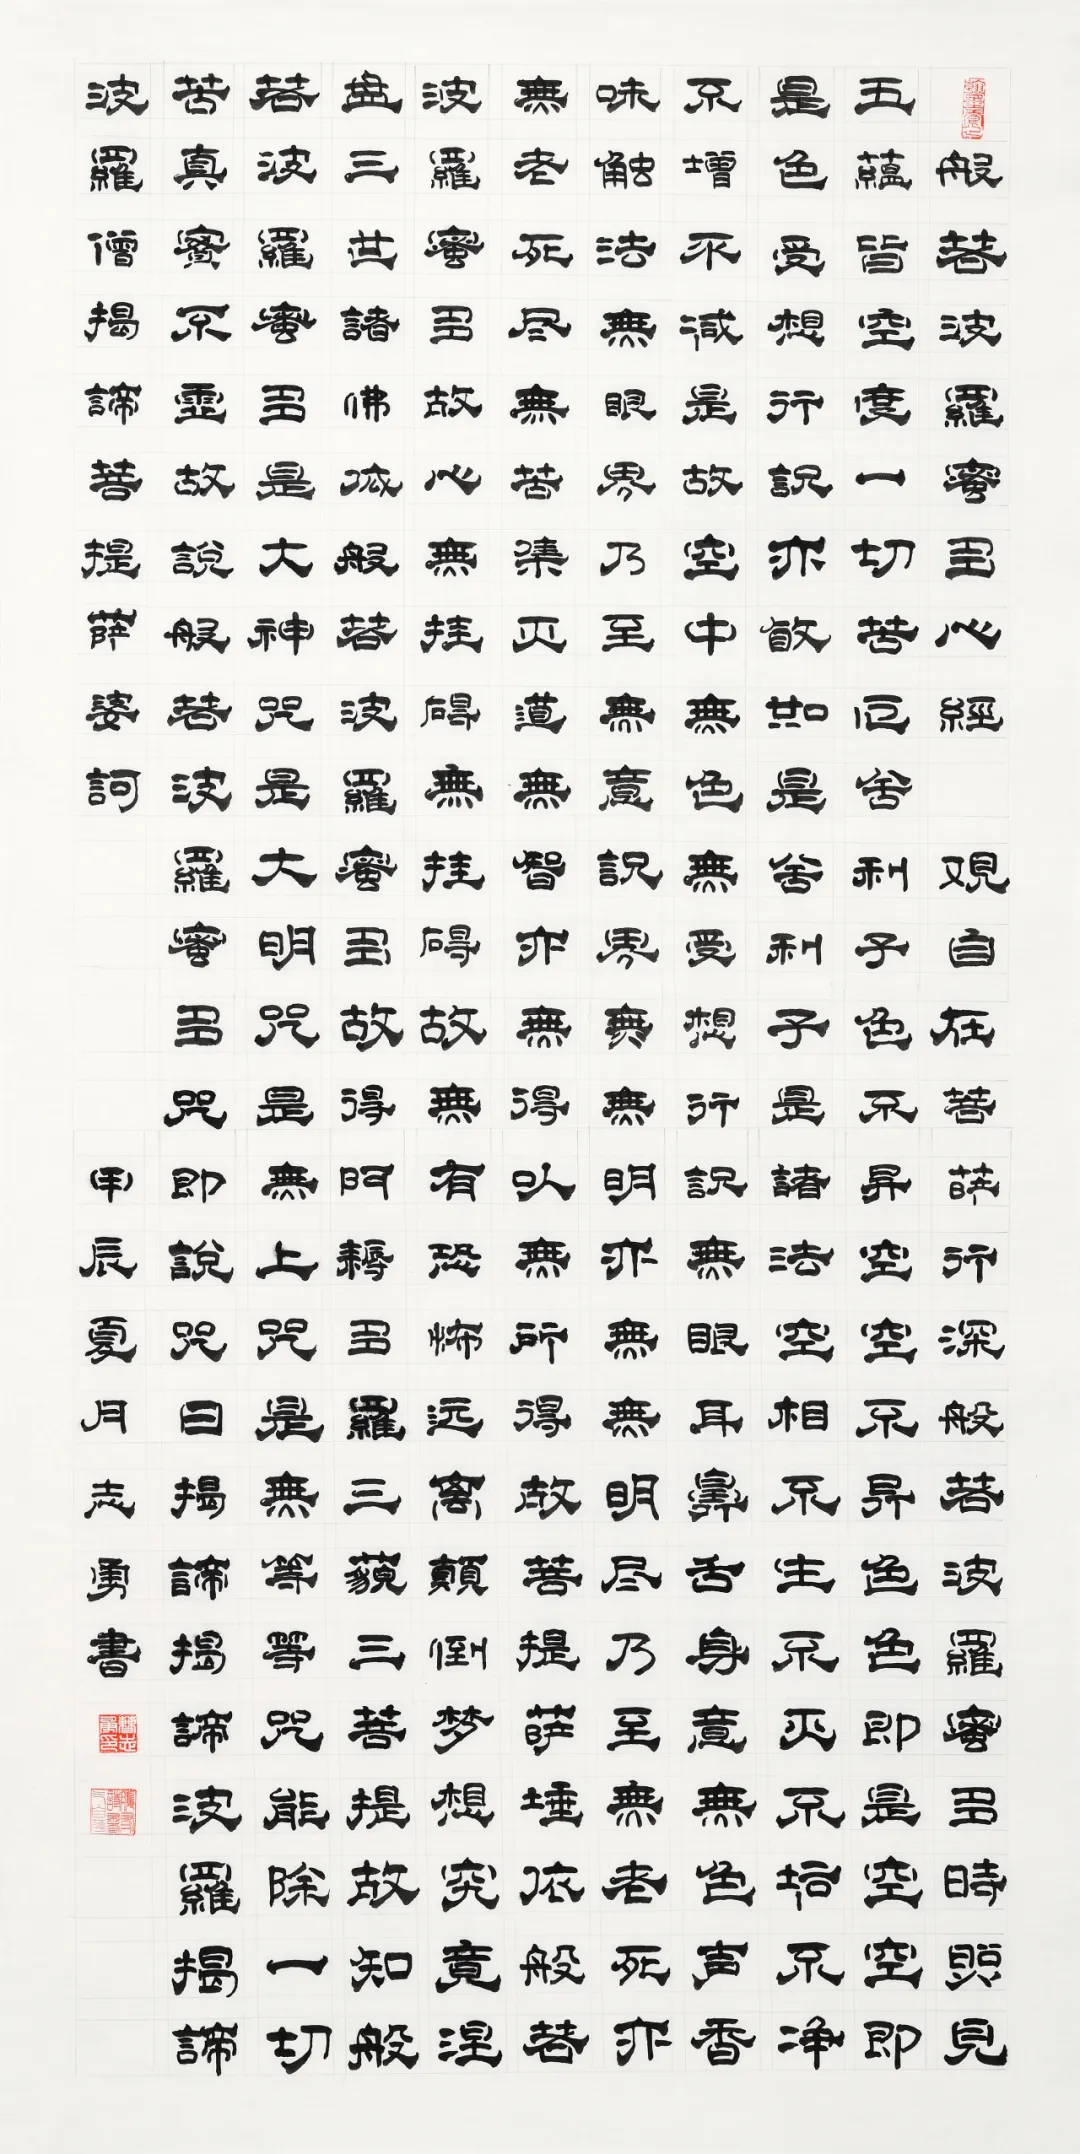 般若波羅蜜多心經 观自在菩薩行深般若波羅蜜多時照見
五蘊皆空度一切苦厄舍利子色不异空空不异色色即是空空即
是色受想行識亦復如是舍利子是諸法空相不生不灭不垢不净
不增不减是故空中無色無受想行識無眼耳鼻舌身意無色声香
味触法無眼界乃至無意識界無無明亦無無明尽乃至無老死亦
無老死尽無苦集灭道無智亦無得以無所得故菩提薩埵依般若
波羅蜜多故心無挂碍無挂碍故無有恐怖远离顛倒梦想究竟涅
盘三世諸佛依般若波羅蜜多故得阿耨多羅三藐三菩提故知般
若波羅蜜多是大神咒是大明咒是無上咒是無等等咒能除一切
苦真實不虚故說般若波羅蜜多咒即說咒曰揭諦揭諦波羅揭諦
波羅僧揭諦菩提薩婆訶 甲辰夏月志勇書